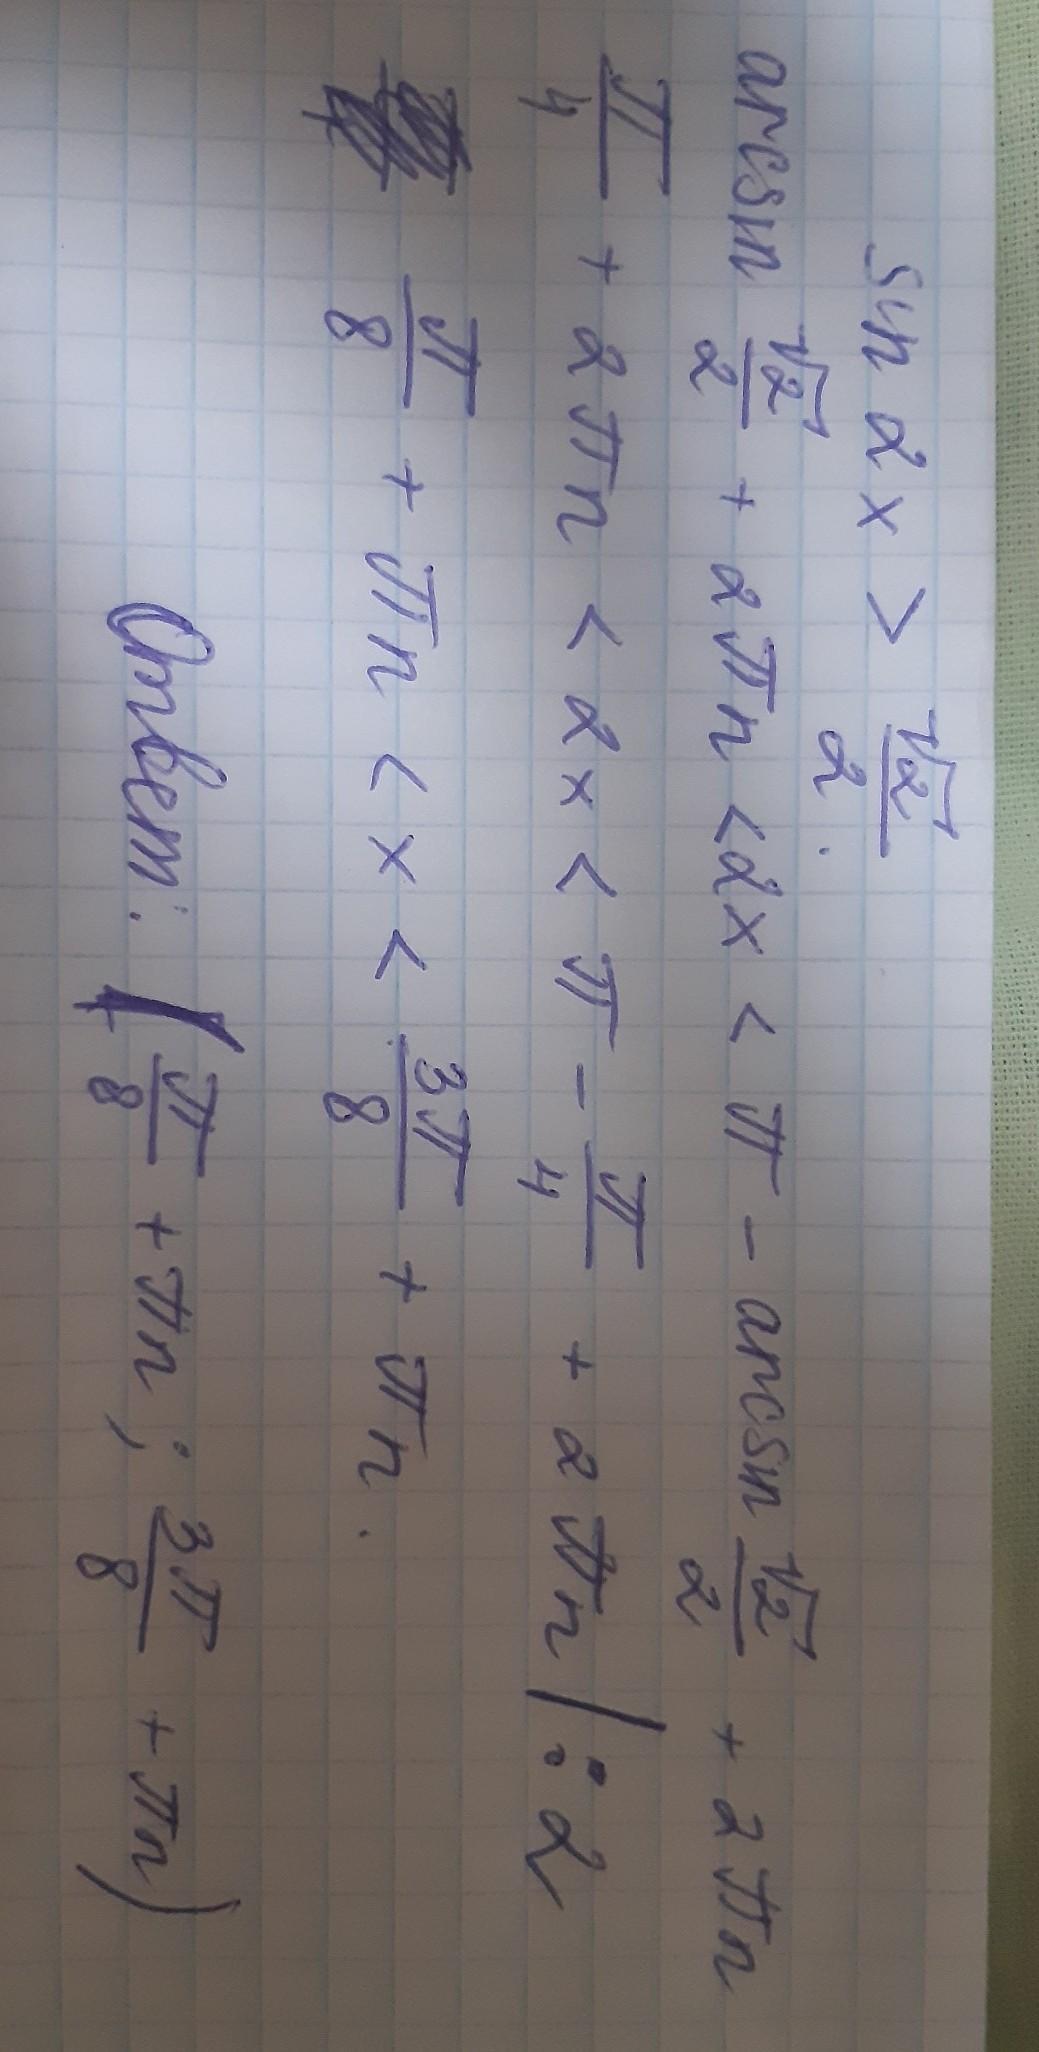 sin 2x > √2/2.
arcsin √2/2 + 2πn < 2x < π - arcsin √2/2 + 2πn
π/4 + 2πn < 2x < π - π/4 + 2πn /:2
π/8 + πn < x < 3π/8 + πn.
Ответ: (π/8 + πn; 3π/8 + πn)